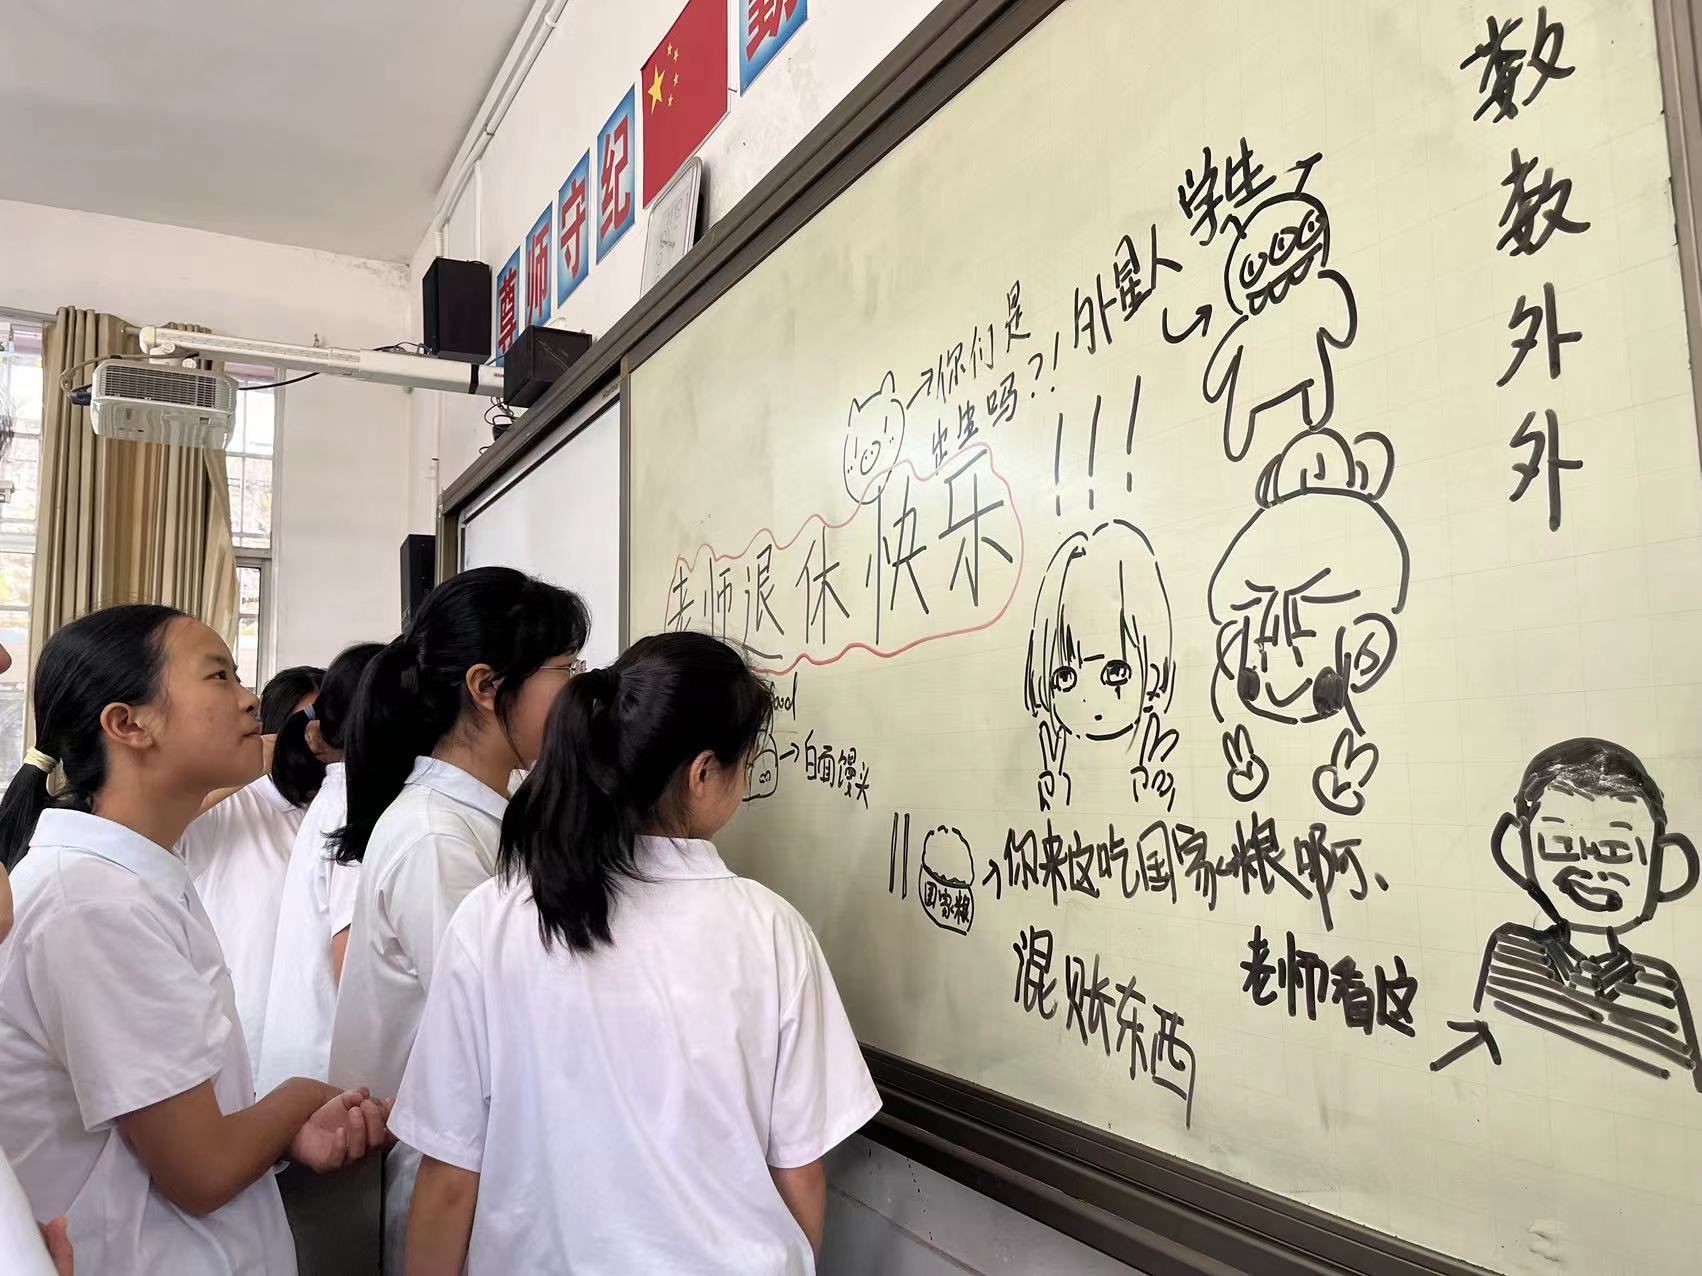 尊师守纪
勤
学生
外星人
你们是
出生吗?!
!!!
老师退休快乐
白面馒头
国家粮
你来这吃国家粮啊、
混账东西
老师看这
数数外外